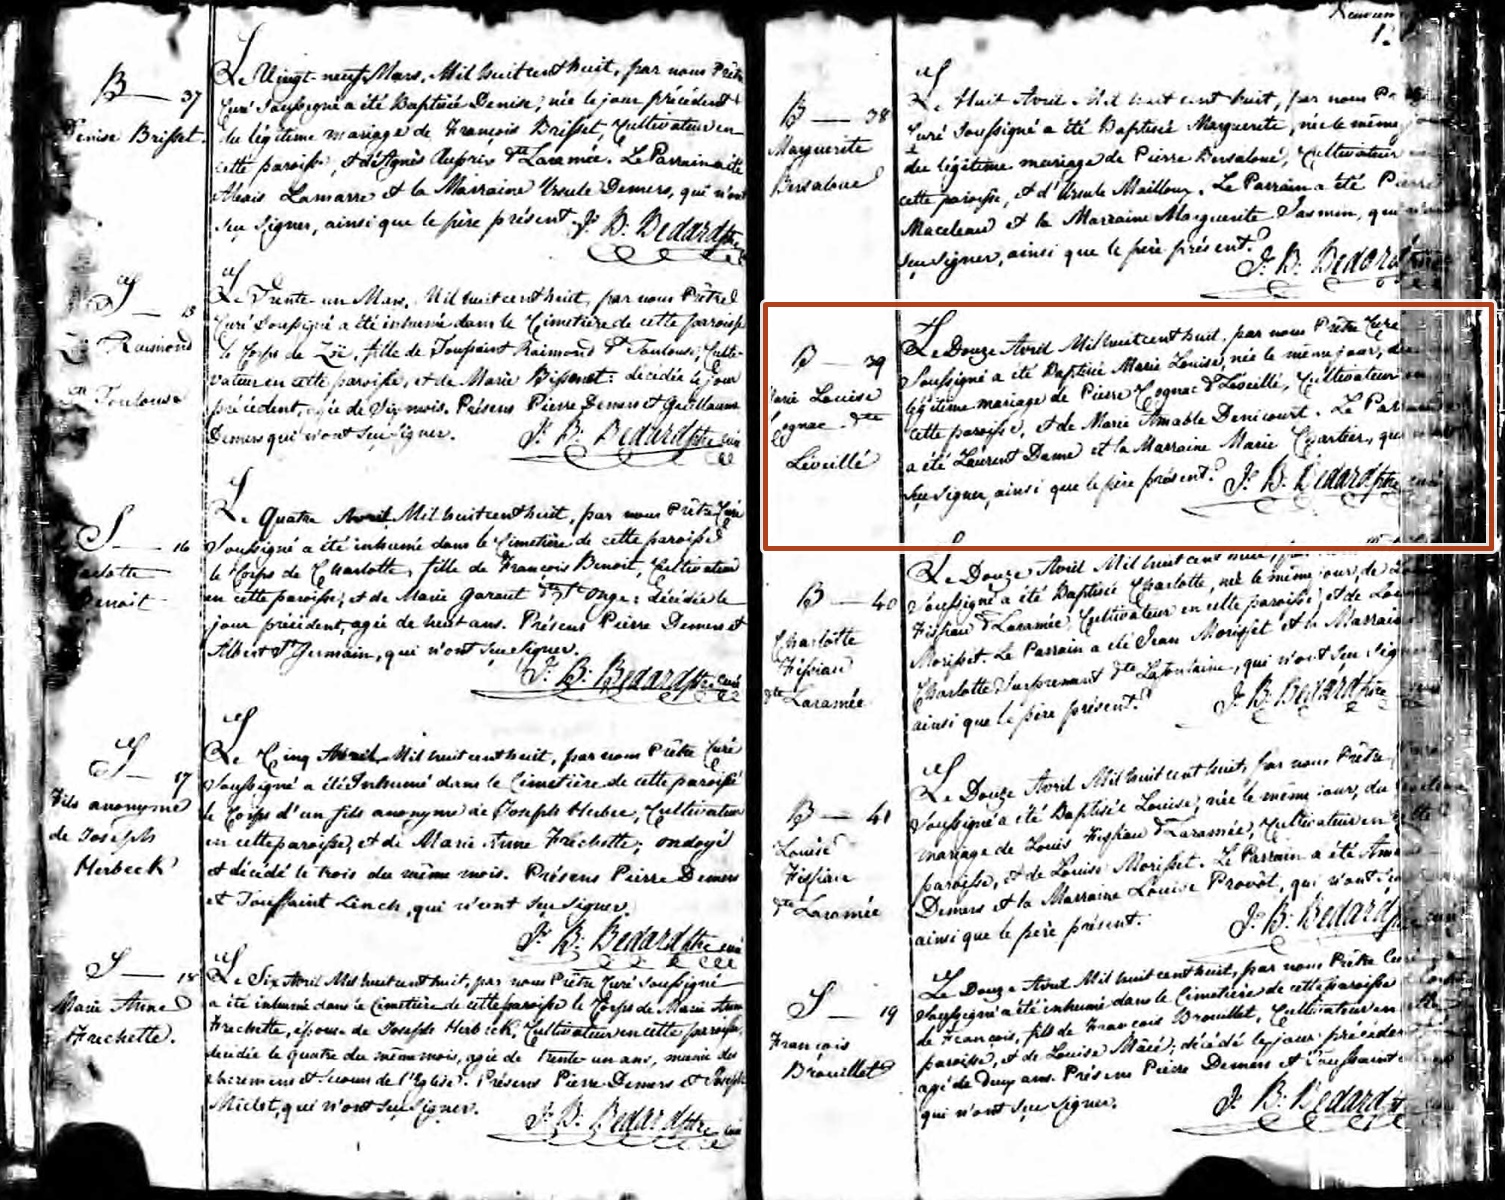 B — 37
Denise Brisset.
Le Vingt-neuf Mars, Mil huit cent huit, par nous Prêtre
Curé Soussigné a été Baptisée Denise, née le jour précédent
du légitime mariage de François Brisset, Cultivateur en
cette paroisse, et d'Agnès Dupris dte Laramée. Le Parrain a été
Alexis Lamarre et la Marraine Ursule Demers, qui n'ont
sçu signer, ainsi que le père présent. J. B. Bedard ptre
S — 15
Raimond
Toulouse
Le Trente-un Mars, Mil huit cent huit, par nous Prêtre
Curé Soussigné a été inhumée dans le Cimetière de cette paroisse
le Corps de Zöe, fille de Toussaint Raimond dt Toulouse, Culti-
vateur en cette paroisse, et de Marie Bissonet: décédée le jour
précédent, agée de Six mois. Présens Pierre Demers et Guillaume
Demers qui n'ont sçu signer. J. B. Bedard ptre curé
S — 16
Charlotte
Benoit
Le Quatre Avril Mil huit cent huit, par nous Prêtre Curé
Soussigné a été inhumée dans le Cimetière de cette paroisse
le Corps de Charlotte, fille de François Benoit, Cultivateur
en cette paroisse, et de Marie Garant dte St Onge: décédée le
jour précédent, agée de huit ans. Présens Pierre Demers et
Albert St Germain, qui n'ont sçu signer.
J. B. Bedard ptre curé
S — 17
Fils anonyme
de Joseph
Herbeck
Le Cinq Avril Mil huit cent huit, par nous Prêtre Curé
Soussigné a été Inhumé dans le Cimetière de cette paroisse
le Corps d'un fils anonyme de Joseph Herbec, Cultivateur
en cette paroisse, et de Marie Anne Fréchette; ondoyé
et décédé le trois du même mois. Présens Pierre Demers
et Toussaint Linch, qui n'ont sçu signer.
J. B. Bedard ptre curé
S — 18
Marie Anne
Frechette.
Le Six Avril Mil huit cent huit, par nous Prêtre Curé Soussigné
a été inhumée dans le Cimetière de cette paroisse le Corps de Marie Anne
Frechette, épouse de Joseph Herbeck, Cultivateur en cette paroisse,
décédée le quatre du même mois, agée de trente un ans, munie des
sacremens et secours de l'Eglise. Présens Pierre Demers et Joseph
Miclet, qui n'ont sçu signer. J. B. Bedard ptre curé
12
B — 38
Marguerite
Bersaloue
Le Huit Avril Mil huit cent huit, par nous
Curé Soussigné a été Baptisée Marguerite, née le même jour
du légitime mariage de Pierre Bersaloue, Cultivateur en
cette paroisse, et d'Ursule Mailloux. Le Parrain a été Pierre
Maceleau et la Marraine Marguerite Jasmin, qui n'ont
sçu signer, ainsi que le père présent. J. B. Bedard
B — 39
Marie Louise
Cognac dte
Léveillé
Le Douze Avril Mil huit cent huit, par nous Prêtre Curé
Soussigné a été Baptisée Marie Louise, née le même jour, du
légitime mariage de Pierre Cognac dt Léveillé, Cultivateur en
cette paroisse, et de Marie Amable Denicourt. Le Parrain
a été Laurent Dame et la Marraine Marie Chartier, qui n'ont
sçu signer, ainsi que le père présent. J. B. Bedard ptre curé
B — 40
Charlotte
Fissiau
dte Laramée
Le Douze Avril Mil huit cent huit,
Soussigné a été Baptisée Charlotte, née le même jour, de
Fissiau dt Laramée, Cultivateur en cette paroisse, et de
Morisset. Le Parrain a été Jean Morisset et la Marraine
Charlotte Surprenant dte Lafontaine, qui n'ont sçu signer
ainsi que le père présent. J. B. Bedard ptre
B — 41
Louise
Fissiau
dte Laramée
Le Douze Avril Mil huit cent huit, par nous Prêtre
Soussigné a été Baptisée Louise, née le même jour, du
mariage de Louis Fissiau dt Laramée, Cultivateur en cette
paroisse, et de Louise Morisset. Le Parrain a été
Demers et la Marraine Louise Provôt, qui n'ont sçu
ainsi que le père présent. J. B. Bedard
S — 19
François
Brouillet
Le Douze Avril Mil huit cent huit, par nous Prêtre Curé
Soussigné a été inhumé dans le Cimetière de cette paroisse le Corps
de François, fils de François Brouillet, Cultivateur en cette
paroisse, et de Louise Macé; décédé le jour précédent
agé de deux ans. Présens Pierre Demers et Toussaint
qui n'ont sçu signer. J. B. Bedard